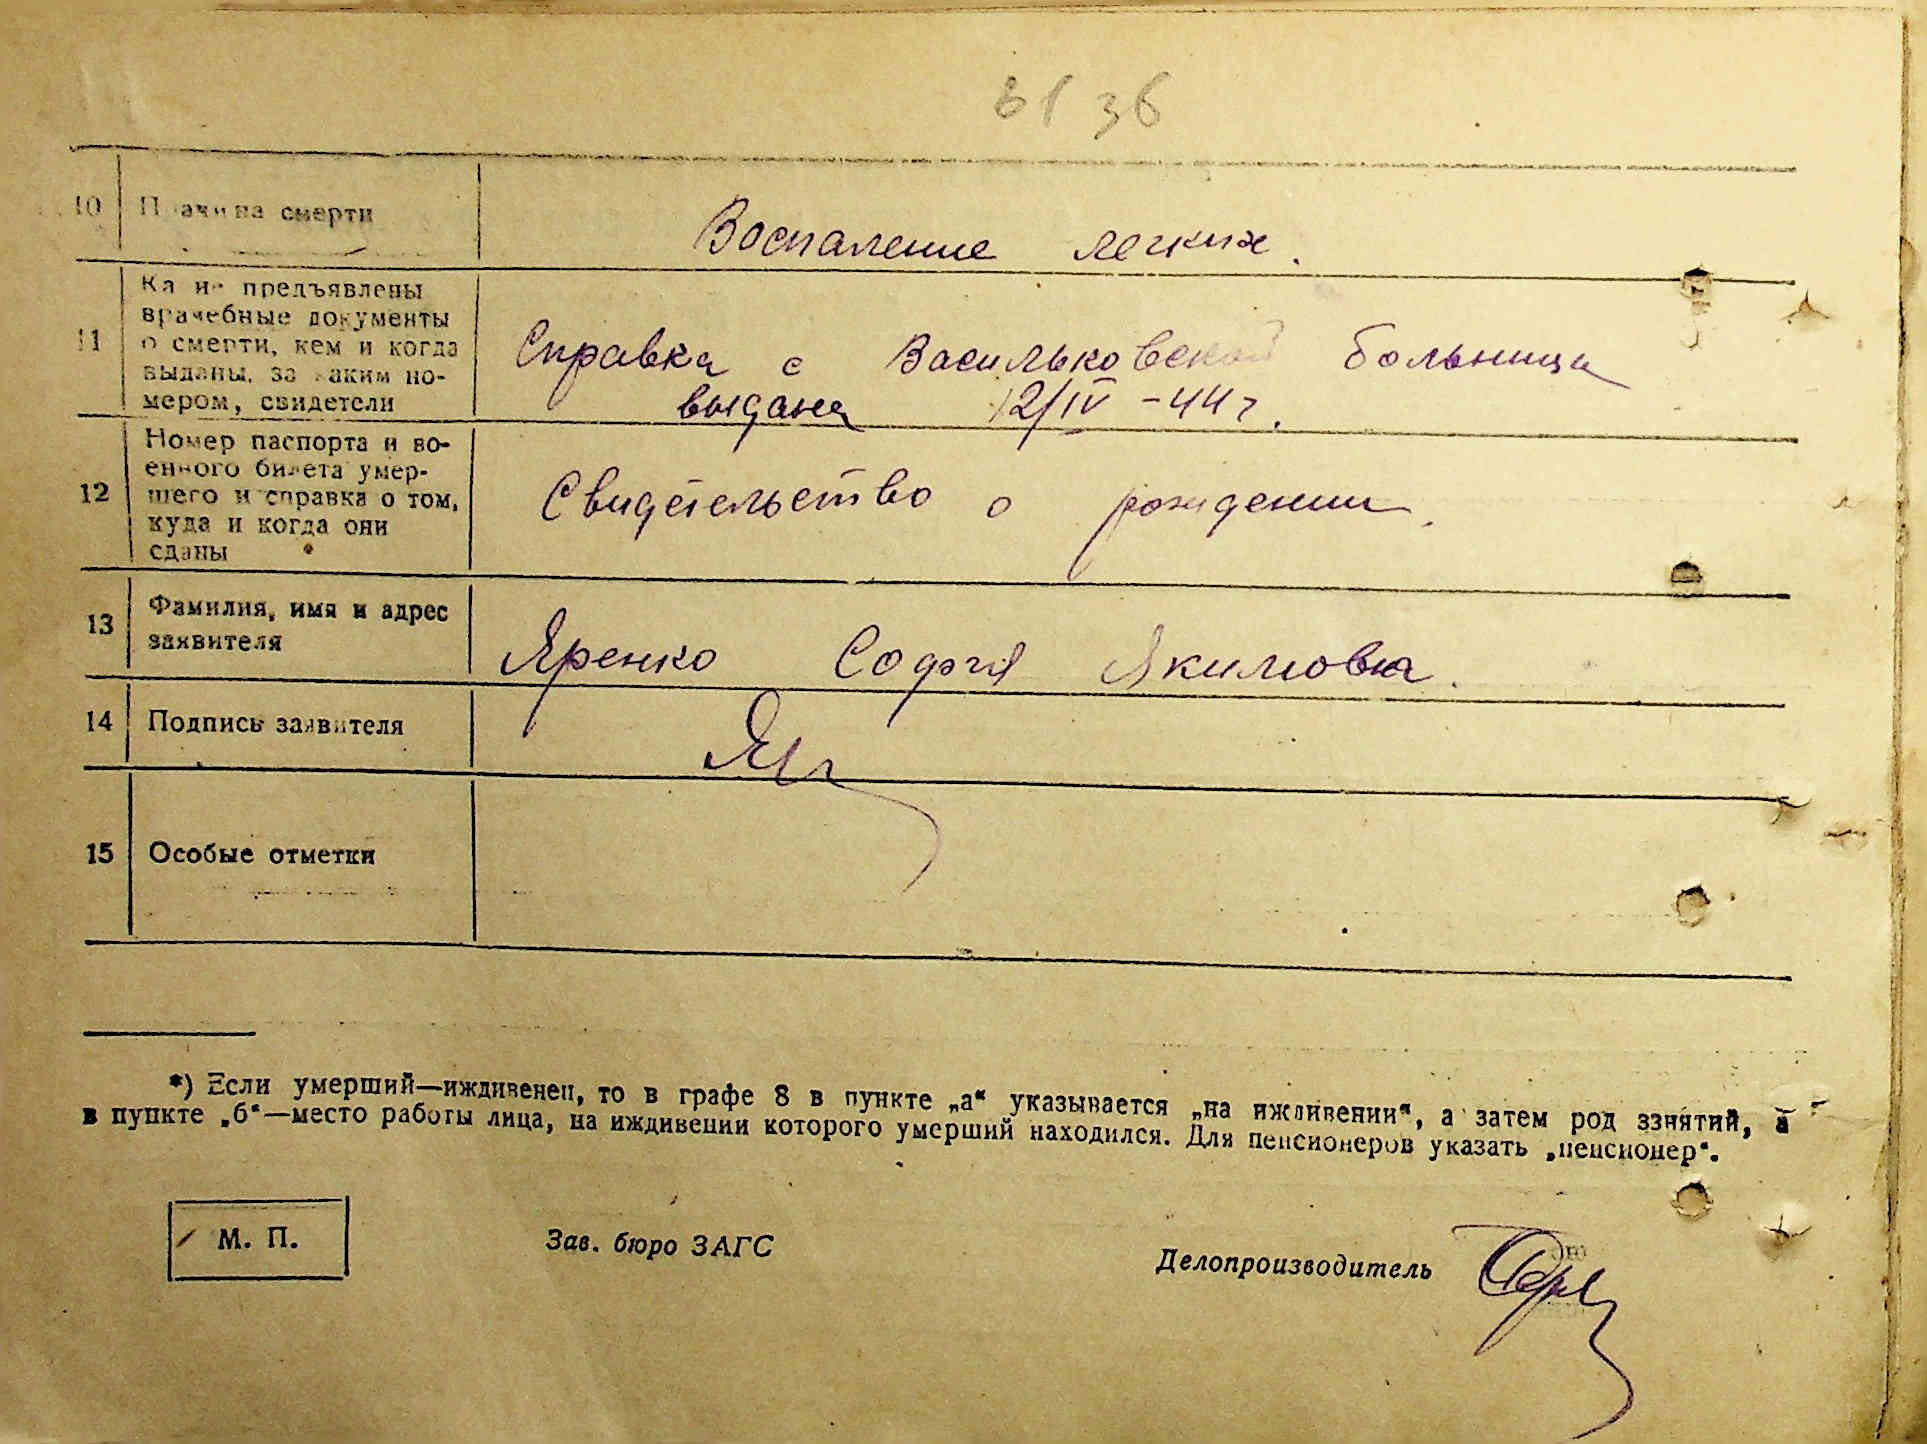 36
10 Причина смерти
Воспаление легких.
Какие предъявлены
врачебные документы
11 о смерти, кем и когда
выданы, за каким но-
мером, свидетели
Справка с Васильковской больницы
выдана 12/IV -44 г.
Номер паспорта и во-
енного билета умер-
12 шего и справка о том,
куда и когда они
сданы
Свидетельство о рождении.
13 Фамилия, имя и адрес
заявителя
Яренко София Якимовна.
14 Подпись заявителя
15 Особые отметки
*) Если умерший—иждивенец, то в графе 8 в пункте „а“ указывается „на иждивении“, а затем род ззнятий, а
в пункте „б“—место работы лица, на иждивении которого умерший находился. Для пенсионеров указать „пенсионер“.
М. П.
Зав. бюро ЗАГС
Делопроизводитель